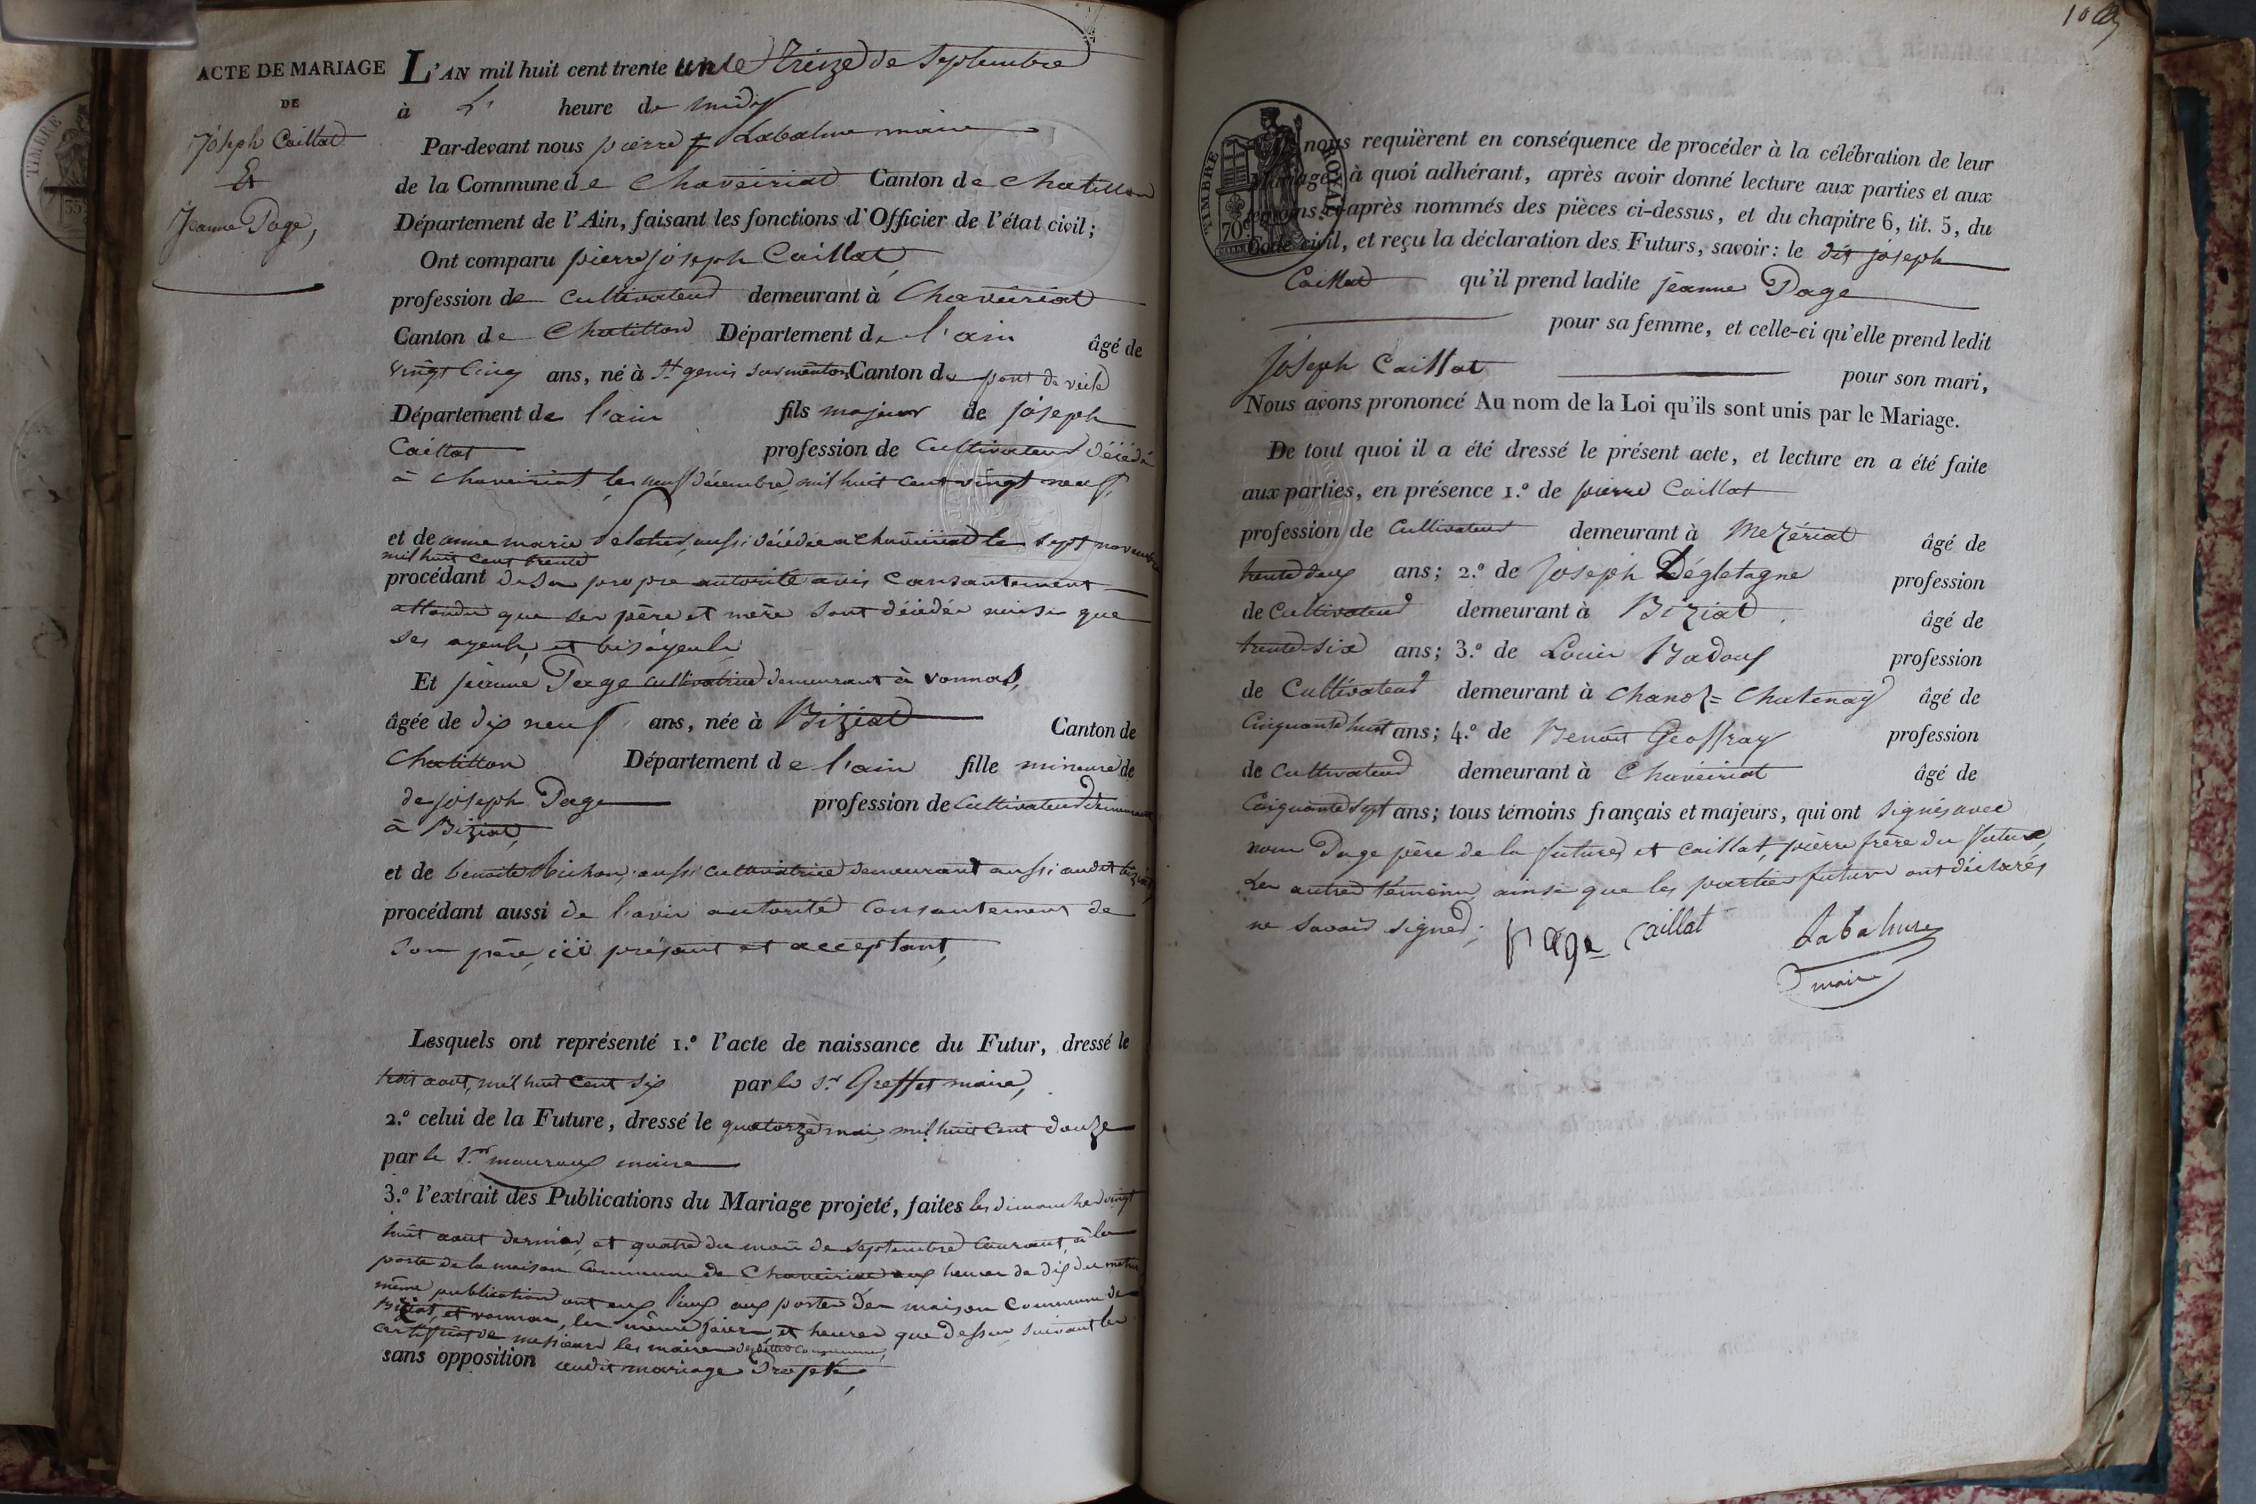 ACTE DE MARIAGE
DE
Joseph Caillat
Et
Jeanne Page,
L'AN mil huit cent trente un le treize de Septembre
à L' heure de midy
Par-devant nous pierre f Labalme maire
de la Commune de Chaveiriat Canton de Chatillon
Département de l'Ain, faisant les fonctions d'Officier de l'état civil;
Ont comparu pierre joseph Caillat,
profession de Cultivateur demeurant à Chaveiriat
Canton de Chatillon Département de l'ain âgé de
vingt Cinq ans, né à St genis sur menton Canton de pont de veile
Département de l'ain fils majeur de joseph
Caillat profession de Cultivateur décédé
à Chaveiriat le neuf décembre mil huit cent vingt neuf,
et de anne marie aussi décédée a Chaveiriat le sept novembre
mil huit cent trente
procédant de son propre autorité avis consantement
attendu que ses père et mère sont décédée ainsi que
ses ayeuls, et bisayeuls
Et jeanne Page cultivatrice demeurant à vonnas,
âgée de dix neuf ans, née à Biziat Canton de
Chatillon Département de l'ain fille mineure de
de joseph Page profession de Cultivateur demeurant
à Biziat,
et de benoite Michon, aussi cultivatrice demeurant aussi audit biziat,
procédant aussi de l'avis autorité consantement de
son père, ici présant et acceptant,
Lesquels ont représenté 1.º l'acte de naissance du Futur, dressé le
trois aout, mil huit cent six par le Sr Greffet maire,
2.º celui de la Future, dressé le quatorze mai mil huit cent douze
par le Sr maire
3.º l'extrait des Publications du Mariage projeté, faites les dimanches vingt
huit aout dernier, et quatre du mois de Septembre Courant, à la
porte de la maison Commune de Chaveiriat aux heures de dix du matin
même publication ont eux lieux aux portes des maison Commune de
Biziat, et vonnas, les mêmes jours, et heures que dessus, suivant les
certificat de messieurs les maires desdittes communes,
sans opposition audit mariage Projeté,
nous requièrent en conséquence de procéder à la célébration de leur
Mariage, à quoi adhérant, après avoir donné lecture aux parties et aux
témoins ci-après nommés des pièces ci-dessus, et du chapitre 6, tit. 5, du
Code civil, et reçu la déclaration des Futurs, savoir: le dit joseph
Caillat qu'il prend ladite jeanne Page
pour sa femme, et celle-ci qu'elle prend ledit
joseph Caillat pour son mari,
Nous avons prononcé Au nom de la Loi qu'ils sont unis par le Mariage.
De tout quoi il a été dressé le présent acte, et lecture en a été faite
aux parties, en présence 1.º de pierre Caillat
profession de Cultivateur demeurant à Mezériat âgé de
trente deux ans; 2.º de joseph Dégletagne profession
de Cultivateur demeurant à Biziat, âgé de
trente six ans; 3.º de Louis Badoux profession
de Cultivateur demeurant à Chanoz=Chatenay âgé de
Cinquante huit ans; 4.º de Benoit Geoffray profession
de Cultivateur demeurant à Chaveiriat âgé de
Cinquante sept ans; tous témoins français et majeurs, qui ont signés avec
nous Page père de la future, et caillat, pierre frère du futur,
les autres témoins ainsi que les parties futurs ont déclarés
ne savoir signer;
Page Caillat Labalme
maire
TIMBRE ROYAL
70c
TIMBRE
35